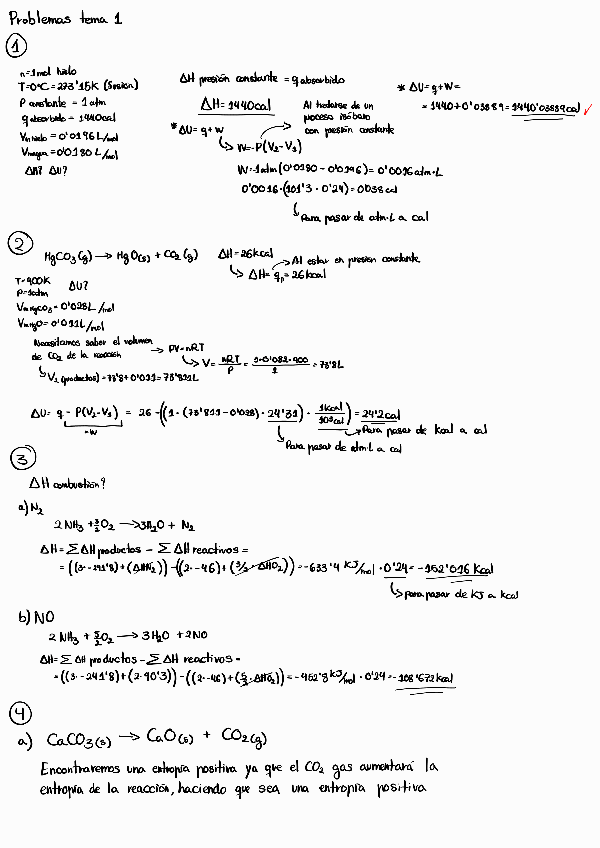 Problemas tema 1
①
n=1mol hielo
T=0ºC=273'15K (fusión)
P constante = 1 atm
q absorbido = 1440cal
Vm hielo = 0'0196 L/mol
Vm agua = 0'0180 L/mol
ΔH? ΔU?
ΔH presión constante = q absorbido
ΔH = 1440cal
* ΔU = q+W
Al tratarse de un
proceso isóbaro
con presión constante
W = -P(V₂-V₁)
W = -1 atm (0'0180 - 0'0196) = 0'0016 atm·L
0'0016·(101'3·0'24) = 0'038 cal
Para pasar de atm·L a cal
* ΔU = q+W =
= 1440+0'03889 = 1440'03889 cal ✓
②
HgCO₃(g) → HgO(s) + CO₂(g)
ΔH = 26kcal
Al estar en presión constante
ΔH = qp = 26kcal
T=900K
P=1atm
ΔU?
Vm HgCO₃ = 0'028L/mol
Vm HgO = 0'011L/mol
Necesitamos saber el volumen
de CO₂ de la reacción → PV=nRT
V = nRT/P = 1·0'082·900/1 = 73'8L
V₂ (productos) = 73'8+0'011 = 73'811L
ΔU = q - P(V₂-V₁) = 26 - ((1·(73'811-0'028)·24'31)·1Kcal/10³cal) = 24'2cal
-W
Para pasar de Kcal a cal
Para pasar de atm·L a cal
③
ΔH combustión?
a) N₂
2NH₃ + 3/2 O₂ → 3H₂O + N₂
ΔH = ΣΔH productos - ΣΔH reactivos =
= ((3·-241'8)+(ΔHN₂)) - ((2·-46)+(3/2·ΔHO₂)) = -633'4 KJ/mol · 0'24 = -152'016 Kcal
para pasar de KJ a kcal
b) NO
2NH₃ + 5/2 O₂ → 3H₂O + 2NO
ΔH = ΣΔH productos - ΣΔH reactivos =
= ((3·-241'8)+(2·90'3)) - ((2·-46)+(5/2·ΔHO₂)) = -452'8 kJ/mol · 0'24 = -108'672 kcal
④
a) CaCO₃(s) → CaO(s) + CO₂(g)
Encontraremos una entropía positiva ya que el CO₂ gas aumentará la
entropía de la reacción, haciendo que sea una entropía positiva